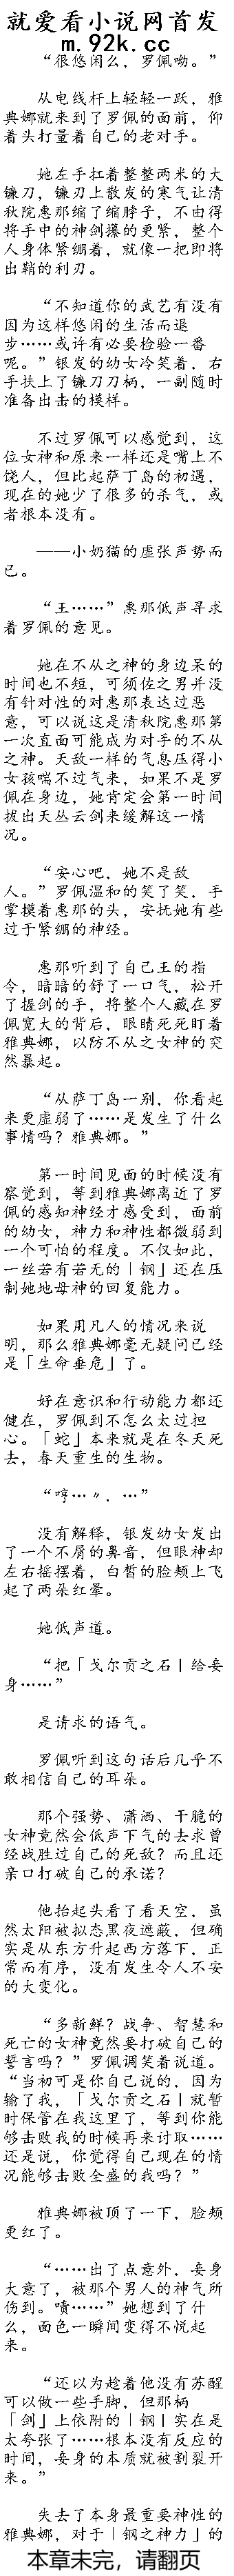 就爱看小说网首发
m.92k.cc
“很悠闲么，罗佩呦。”
从电线杆上轻轻一跃，雅
典娜就来到了罗佩的面前，仰
着头打量着自己的老对手。
她左手扛着整整两米的大
镰刀，镰刃上散发的寒气让清
秋院惠那缩了缩脖子，不由得
将手中的神剑攥的更紧，整个
人身体紧绷着，就像一把即将
出鞘的利刃。
“不知道你的武艺有没有
因为这样悠闲的生活而退
步……或许有必要检验一番
呢。”银发的幼女冷笑着，右
手扶上了镰刀刀柄，一副随时
准备出击的模样。
不过罗佩可以感觉到，这
位女神和原来一样还是嘴上不
饶人，但比起萨丁岛的初遇，
现在的她少了很多的杀气，或
者根本没有。
——小奶猫的虚张声势而
已。
“王……”惠那低声寻求
着罗佩的意见。
她在不从之神的身边呆的
时间也不短，可须佐之男并没
有针对性的对惠那表达过恶
意，可以说这是清秋院惠那第
一次直面可能成为对手的不从
之神。天敌一样的气息压得小
女孩喘不过气来，如果不是罗
佩在身边，她肯定会第一时间
拔出天丛云剑来缓解这一情
况。
“安心吧，她不是敌
人。”罗佩温和的笑了笑，手
掌摸着惠那的头，安抚她有些
过于紧绷的神经。
惠那听到了自己王的指
令，暗暗的舒了一口气，松开
了握剑的手，将整个人藏在罗
佩宽大的背后，眼睛死死盯着
雅典娜，以防不从之女神的突
然暴起。
“从萨丁岛一别，你看起
来更虚弱了……是发生了什么
事情吗？雅典娜。”
第一时间见面的时候没有
察觉到，等到雅典娜离近了罗
佩的感知神经才感受到，面前
的幼女，神力和神性都微弱到
一个可怕的程度。不仅如此，
一丝若有若无的「钢」还在压
制她地母神的回复能力。
如果用凡人的情况来说
明，那么雅典娜毫无疑问已经
是「生命垂危」了。
好在意识和行动能力都还
健在，罗佩到不怎么太过担
心。「蛇」本来就是在冬天死
去，春天重生的生物。
“哼…〃．…”
没有解释，银发幼女发出
了一个不屑的鼻音，但眼神却
左右摇摆着，白皙的脸颊上飞
起了两朵红晕。
她低声道。
“把「戈尔贡之石」给妾
身……”
是请求的语气。
罗佩听到这句话后几乎不
敢相信自己的耳朵。
那个强势、潇洒、干脆的
女神竟然会低声下气的去求曾
经战胜过自己的死敌？而且还
亲口打破自己的承诺？
他抬起头看了看天空，虽
然太阳被拟态黑夜遮蔽，但确
实是从东方升起西方落下，正
常而有序，没有发生令人不安
的大变化。
“多新鲜？战争、智慧和
死亡的女神竟然要打破自己的
誓言吗？”罗佩调笑着说道。
“当初可是你自己说的，因为
输了我，「戈尔贡之石」就暂
时保管在我这里了，等到你能
够击败我的时候再来讨取……
还是说，你觉得自己现在的情
况能够击败全盛的我吗？”
雅典娜被顶了一下，脸颊
更红了。
“……出了点意外，妾身
大意了，被那个男人的神气所
伤到。啧……”她想到了什
么，面色一瞬间变得不悦起
来。
“还以为趁着他没有苏醒
可以做一些手脚，但那柄
「剑」上依附的「钢」实在是
太夸张了……根本没有反应的
时间，妾身的本质就被割裂开
来。”
失去了本身最重要神性的
雅典娜，对于「钢之神力」的
本章未完，请翻页